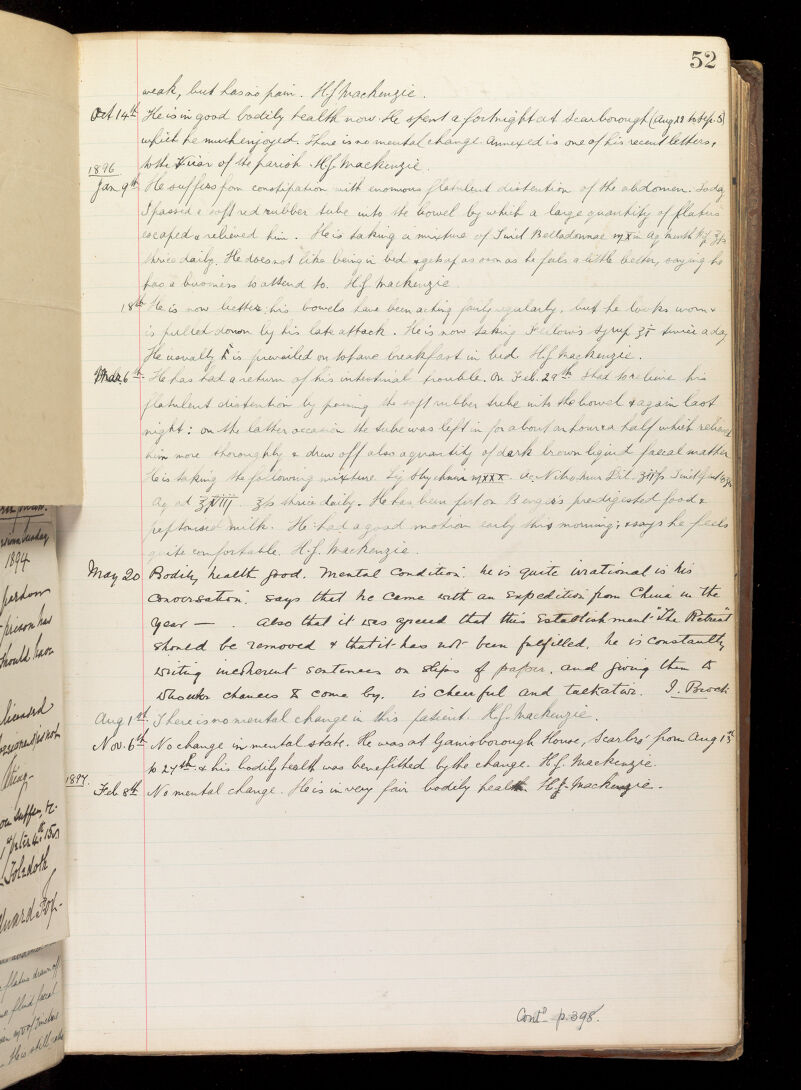 52
weak, but has no pain. H.J. Mackenzie.
Oct 14th He is in good bodily health now. He spent a fortnight at Scarborough (Aug 22 to Sep. 5)
which he much enjoyed. There is no mental change. Annexed is one of his recent letters,
to the Vicar of the parish. H.J. Mackenzie.
1896
Jan 9th He suffers from constipation with enormous flatulent distention of the abdomen. Today
I passed a soft red rubber tube into the bowel by which a large quantity of flatus
escaped & relieved him. He is taking a mixture of Tinct Belladonnae ♏x in Aq Menth Pip ℥ss
thrice daily. He does not like being in bed & gets up as soon as he feels a little better, saying he
has a business to attend to. H.J. Mackenzie.
18th He is now better, his bowels have been acting fairly regularly, but he looks worn &
is pulled down by his late attack. He is now taking Fellow's Syrup ʒi twice a day
He usually is prevailed on to have breakfast in bed. H.J. Mackenzie.
Mar 6th He has had a return of his intestinal trouble. On Feb. 29th I had to relieve his
flatulent distention by passing the soft rubber tube into the bowel & again last
night: on the latter occasion the tube was left in for about an hour & a half which relieved
him more thoroughly & drew off also a quantity of dark brown liquid faecal matter
He is taking the following mixture. Liq Strychniae ♏xxx. Ac. Nitro Mur Dil.
Aq ad ℥viii. ℥ss thrice daily. He has been put on Benger's predigested food &
peptonised milk. He had a good motion early this morning, & says he feels
quite comfortable. H.J. Mackenzie.
May 20 Bodily health good. Mental condition. he is quite irrational in his
conversation. says that he came with an expedition from China in the
year — . Also that it was agreed that this establishment "The Retreat"
should be removed & that it has not been fulfilled. he is constantly
writing incoherent sentences on slips of paper, and giving them to
whoever chances to come by. is cheerful and talkative.
Aug 1st. There is no mental change in this patient. H.J. Mackenzie.
Nov. 6th No change in mental state. He was at Gainsborough House, Scarbro' from Aug 13th
to 27th & his bodily health was benefitted by the change. H.J. Mackenzie
1897.
Feb 8th No mental change. He is in very fair bodily health. H.J. Mackenzie.
Contd p. 398.
1894
pardon
prison has
should have
licensed